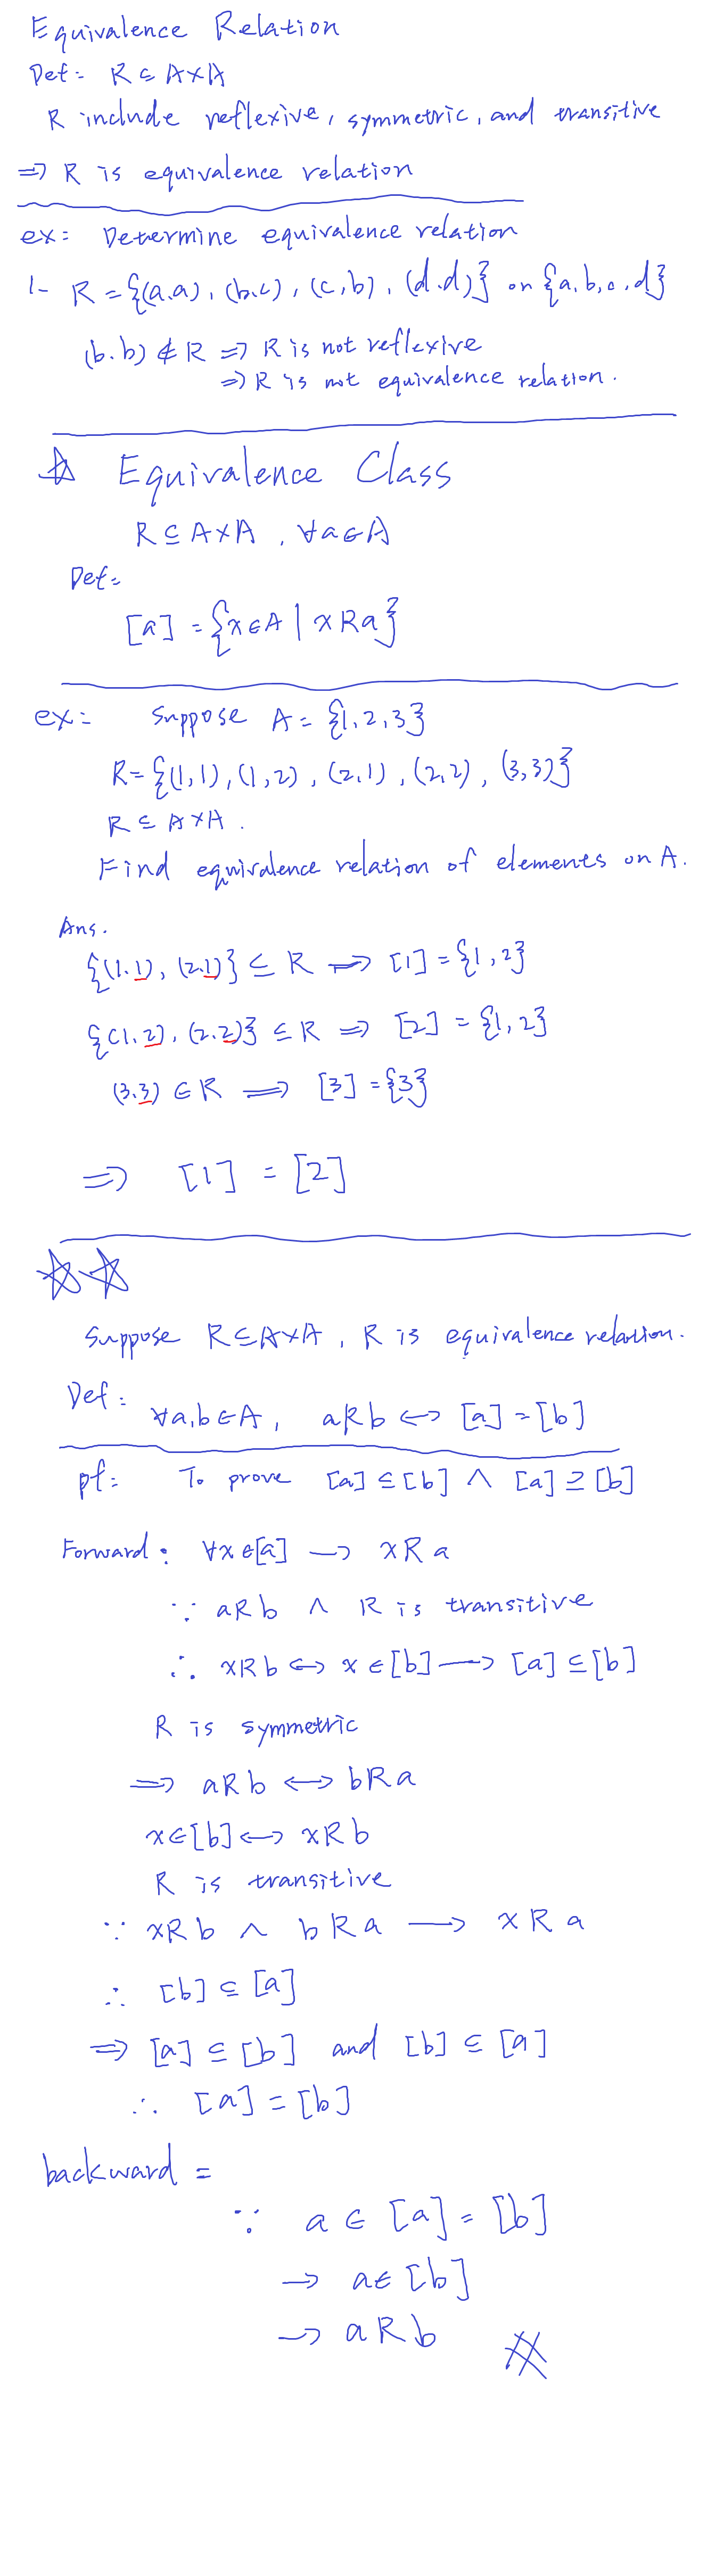 Equivalence Relation
Def: R ⊆ A×A
R include reflexive, symmetric, and transitive
⇒ R is equivalence relation
ex: Determine equivalence relation
1- R = {(a.a), (b.c), (c,b), (d.d)} on {a,b,c,d}
(b.b) ∉ R ⇒ R is not reflexive
⇒ R is not equivalence relation.
☆ Equivalence Class
R ⊆ A×A, ∀a∈A
Def:
[a] = {x∈A | xRa}
ex: Suppose A = {1,2,3}
R = {(1,1), (1,2), (2,1), (2,2), (3,3)}
R ⊆ A×A.
Find equivalence relation of elements on A.
Ans.
{(1.1), (2.1)} ⊆ R ⇒ [1] = {1,2}
{(1.2), (2.2)} ⊆ R ⇒ [2] = {1,2}
(3.3) ∈ R ⇒ [3] = {3}
⇒ [1] = [2]
☆☆
Suppose R ⊆ A×A, R is equivalence relation.
Def: ∀a,b∈A, aRb ↔ [a] = [b]
pf: To prove [a] ⊆ [b] ∧ [a] ⊇ [b]
Forward: ∀x∈[a] → xRa
∵ aRb ∧ R is transitive
∴ xRb ↔ x∈[b] → [a] ⊆ [b]
R is symmetric
⇒ aRb ↔ bRa
x∈[b] ↔ xRb
R is transitive
∵ xRb ∧ bRa → xRa
∴ [b] ⊆ [a]
⇒ [a] ⊆ [b] and [b] ⊆ [a]
∴ [a] = [b]
backward =
∵ a ∈ [a] = [b]
→ a∈[b]
→ aRb #